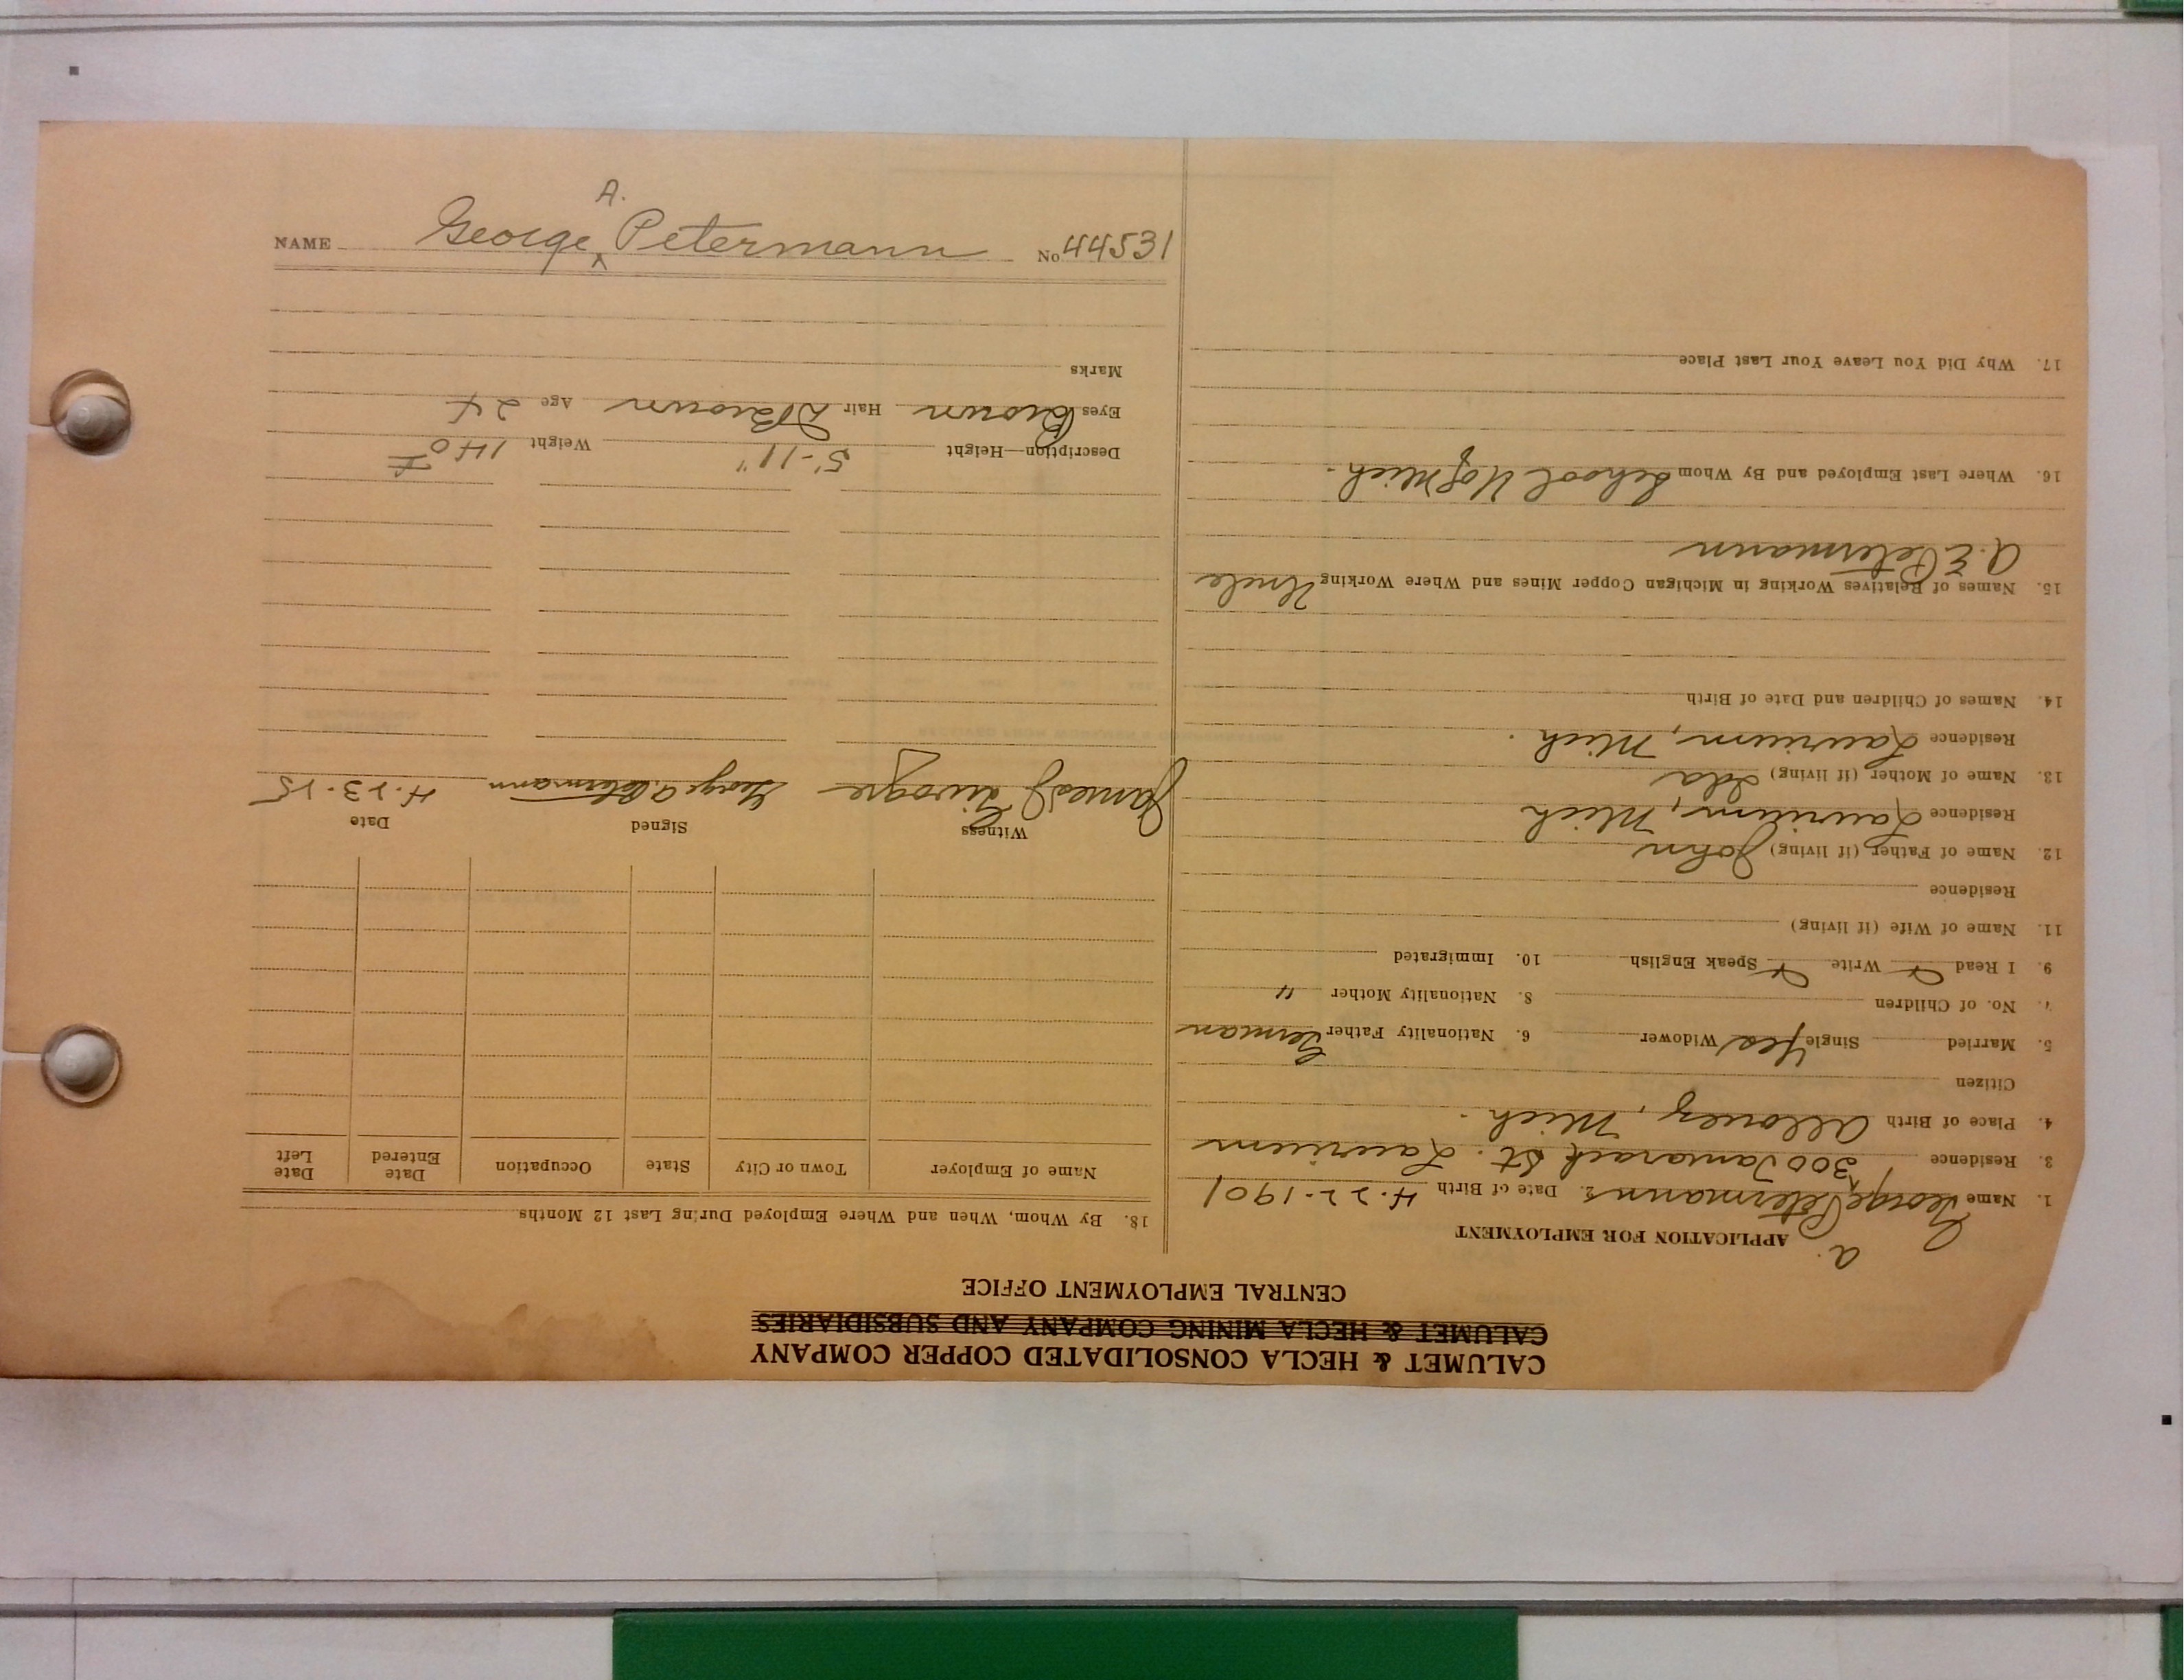 CALUMET & HECLA CONSOLIDATED COPPER COMPANY
CALUMET & HECLA MINING COMPANY AND SUBSIDIARIES
CENTRAL EMPLOYMENT OFFICE
APPLICATION FOR EMPLOYMENT
1. Name George A. Petermann 2. Date of Birth 4-22-1901
3. Residence 300 Tamarack St. Laurium
4. Place of Birth Allouez, Mich.
Citizen
5. Married Single Yes Widower 6. Nationality Father German
7. No. of Children 8. Nationality Mother "
9. I Read Write Speak English 10. Immigrated
11. Name of Wife (if living)
Residence
12. Name of Father (if living) John
Residence Laurium, Mich
13. Name of Mother (if living) Ida
Residence Laurium, Mich.
14. Names of Children and Date of Birth
15. Names of Relatives Working in Michigan Copper Mines and Where Working Uncle
A. E. Petermann
16. Where Last Employed and By Whom School U of Mich.
17. Why Did You Leave Your Last Place
18. By Whom, When and Where Employed During Last 12 Months
Name of Employer Town or City State Occupation Date Entered Date Left
Witness Signed Date
James J George A. Petermann 4-23-25
Description—Height 5'-11" Weight 140 ±
Eyes Brown Hair D Brown Age 24
Marks
NAME George A. Petermann No 44531